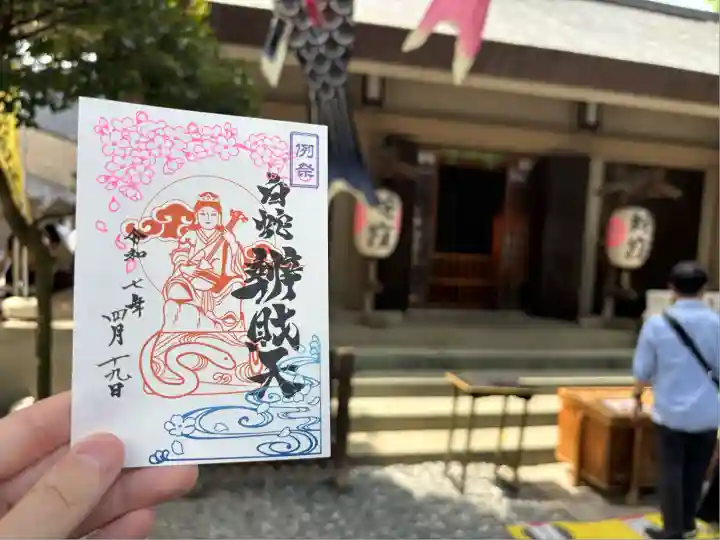 例祭
白蛇
辨財天
令和七年
四月
十九日